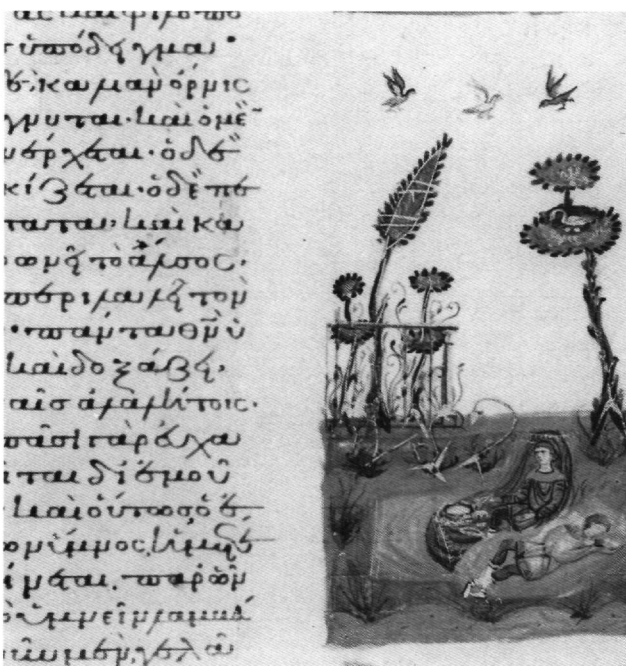 ας καὶ φιλοπο
ὑπόδειγμα·
καλιὰν ὄρνις
γνυται· καὶ ὁ μὲ
νέρχεται· ὁ δὲ
κίζεται· ὁ δὲ πε
πταται· καὶ κα
φωνεῖ τὸ ἄλσος·
περιλαλεῖ τὸν
πάντα θν ὑ
καὶ δοξάζει·
αῖς ἀλαλήτοις·
πᾶσι γὰρ εὐχα
ται δι' ἐμοῦ
καὶ οὕτως ὁ ἐ
ων ὕμνος, ἡμέ
ίνεται. παρ' ὧν
ὸ ὑμνεῖν λαμβά
νῦν μὲν, γελᾶ